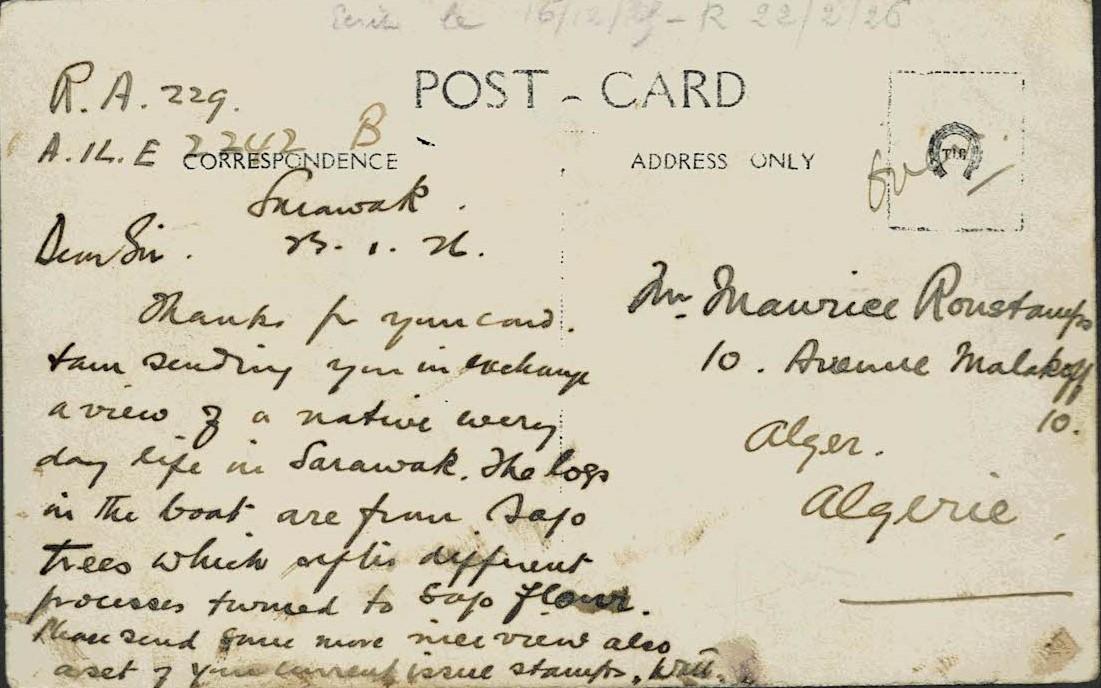 Ecrit le 16/12/25 - R 22/2/26
R. A. 229.
POST - CARD
A. I L. E 2242 B
CORRESPONDENCE
ADDRESS ONLY
TIC
Sarawak.
Dear Sir. 23. 1. 26.
Thanks for your card.
I am sending you in exchange
a view of a native every
day life in Sarawak. The logs
in the boat are from Sago
trees which after different
processes turned to Sago flour.
Please send some more nice view also
a set of your current issue stamps.
Mr. Maurice Roustamps
10. Avenue Malakoff
10.
Alger.
Algerie